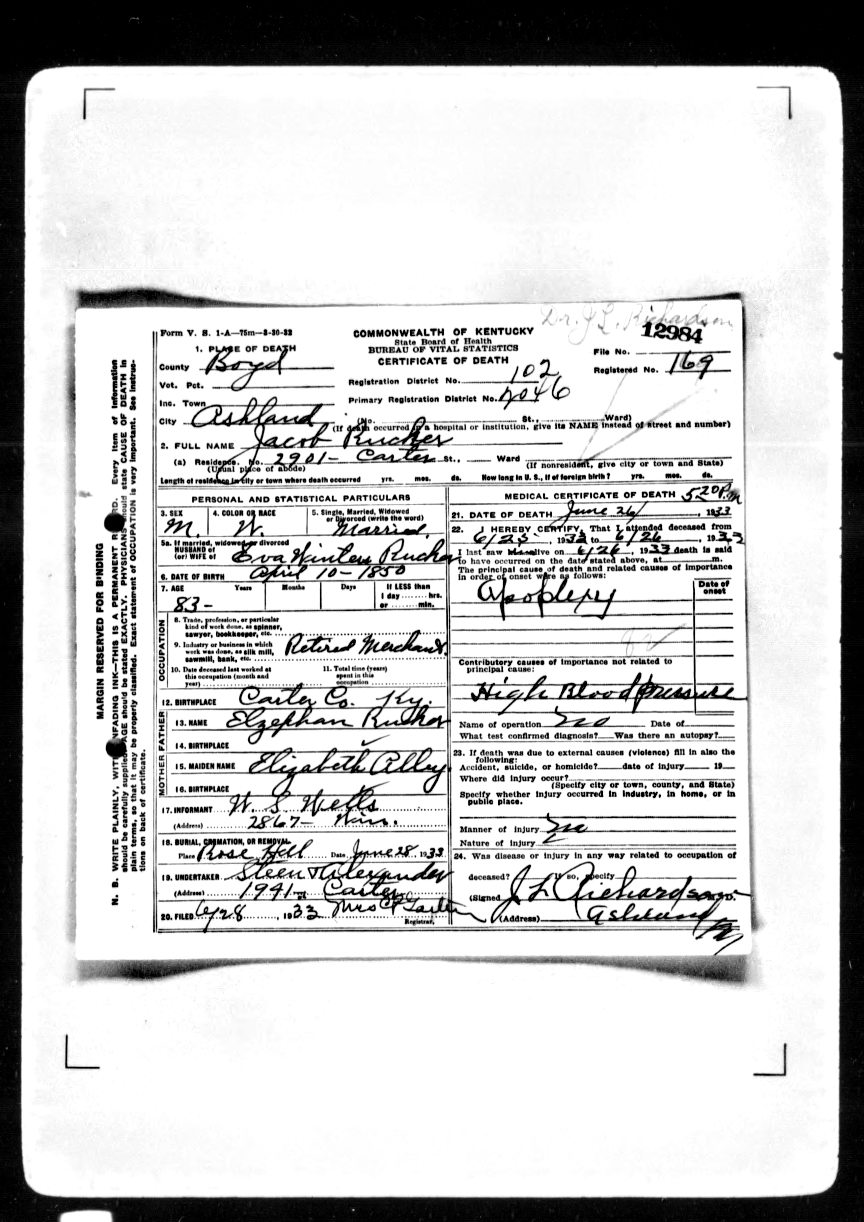 Dr. J. L. Richardson
12984
Form V. S. 1-A—75m—8-30-32
COMMONWEALTH OF KENTUCKY
State Board of Health
BUREAU OF VITAL STATISTICS
CERTIFICATE OF DEATH
1. PLACE OF DEATH
County Boyd
File No.
Registered No. 169
Vot. Pct.
Registration District No. 102
Inc. Town
Primary Registration District No. 2046
City Ashland (No. St., Ward)
(If death occurred in a hospital or institution, give its NAME instead of street and number)
2. FULL NAME Jacob Rucker
(a) Residence. No. 2901- Carter St., Ward
(Usual place of abode) (If nonresident, give city or town and State)
Length of residence in city or town where death occurred yrs. mos. ds. How long in U. S., if of foreign birth? yrs. mos. ds.
PERSONAL AND STATISTICAL PARTICULARS
3. SEX M. 4. COLOR OR RACE W. 5. Single, Married, Widowed or Divorced (write the word) Married.
5a. If married, widowed or divorced
HUSBAND of
(or) WIFE of Eva Winters Rucker
6. DATE OF BIRTH April 10-1850
7. AGE Years Months Days If LESS than
1 day hrs.
or min.
83-
OCCUPATION
8. Trade, profession, or particular
kind of work done, as spinner,
sawyer, bookkeeper, etc.
9. Industry or business in which
work was done, as silk mill,
sawmill, bank, etc. Retired Merchant.
10. Date deceased last worked at
this occupation (month and
year)
11. Total time (years)
spent in this
occupation
12. BIRTHPLACE Carter Co. Ky.
FATHER
13. NAME Elzephan Rucker
14. BIRTHPLACE
MOTHER
15. MAIDEN NAME Elizabeth Alley
16. BIRTHPLACE
17. INFORMANT W. S. Wells
(Address) 2867- Win.
18. BURIAL, CREMATION, OR REMOVAL
Place Rose Hill Date June 28 1933
19. UNDERTAKER Steen & Alexander
(Address) 1941- Carter
20. FILED 6/28, 1933 Mrs
Registrar.
MEDICAL CERTIFICATE OF DEATH 5-20 P.M
21. DATE OF DEATH June 26 1933
22. I HEREBY CERTIFY, That I attended deceased from
6/25, 1933 to 6/26, 1933
I last saw alive on 6/26, 1933 death is said
to have occurred on the date stated above, at m.
The principal cause of death and related causes of importance
in order of onset were as follows:
Date of
onset
Apoplexy
82
Contributory causes of importance not related to
principal cause:
High Blood pressure
Name of operation no Date of
What test confirmed diagnosis? Was there an autopsy?
23. If death was due to external causes (violence) fill in also the
following:
Accident, suicide, or homicide? date of injury 19
Where did injury occur?
(Specify city or town, county, and State)
Specify whether injury occurred in industry, in home, or in
public place.
Manner of injury no
Nature of injury
24. Was disease or injury in any way related to occupation of
deceased? If so, specify
(Signed J L Richardson M.D.
(Address) Ashland Ky
MARGIN RESERVED FOR BINDING
N. B. WRITE PLAINLY, WITH UNFADING INK—THIS IS A PERMANENT RECORD. Every item of information
should be carefully supplied. AGE should be stated EXACTLY. PHYSICIANS should state CAUSE OF DEATH in
plain terms, so that it may be properly classified. Exact statement of OCCUPATION is very important. See instruc-
tions on back of certificate.